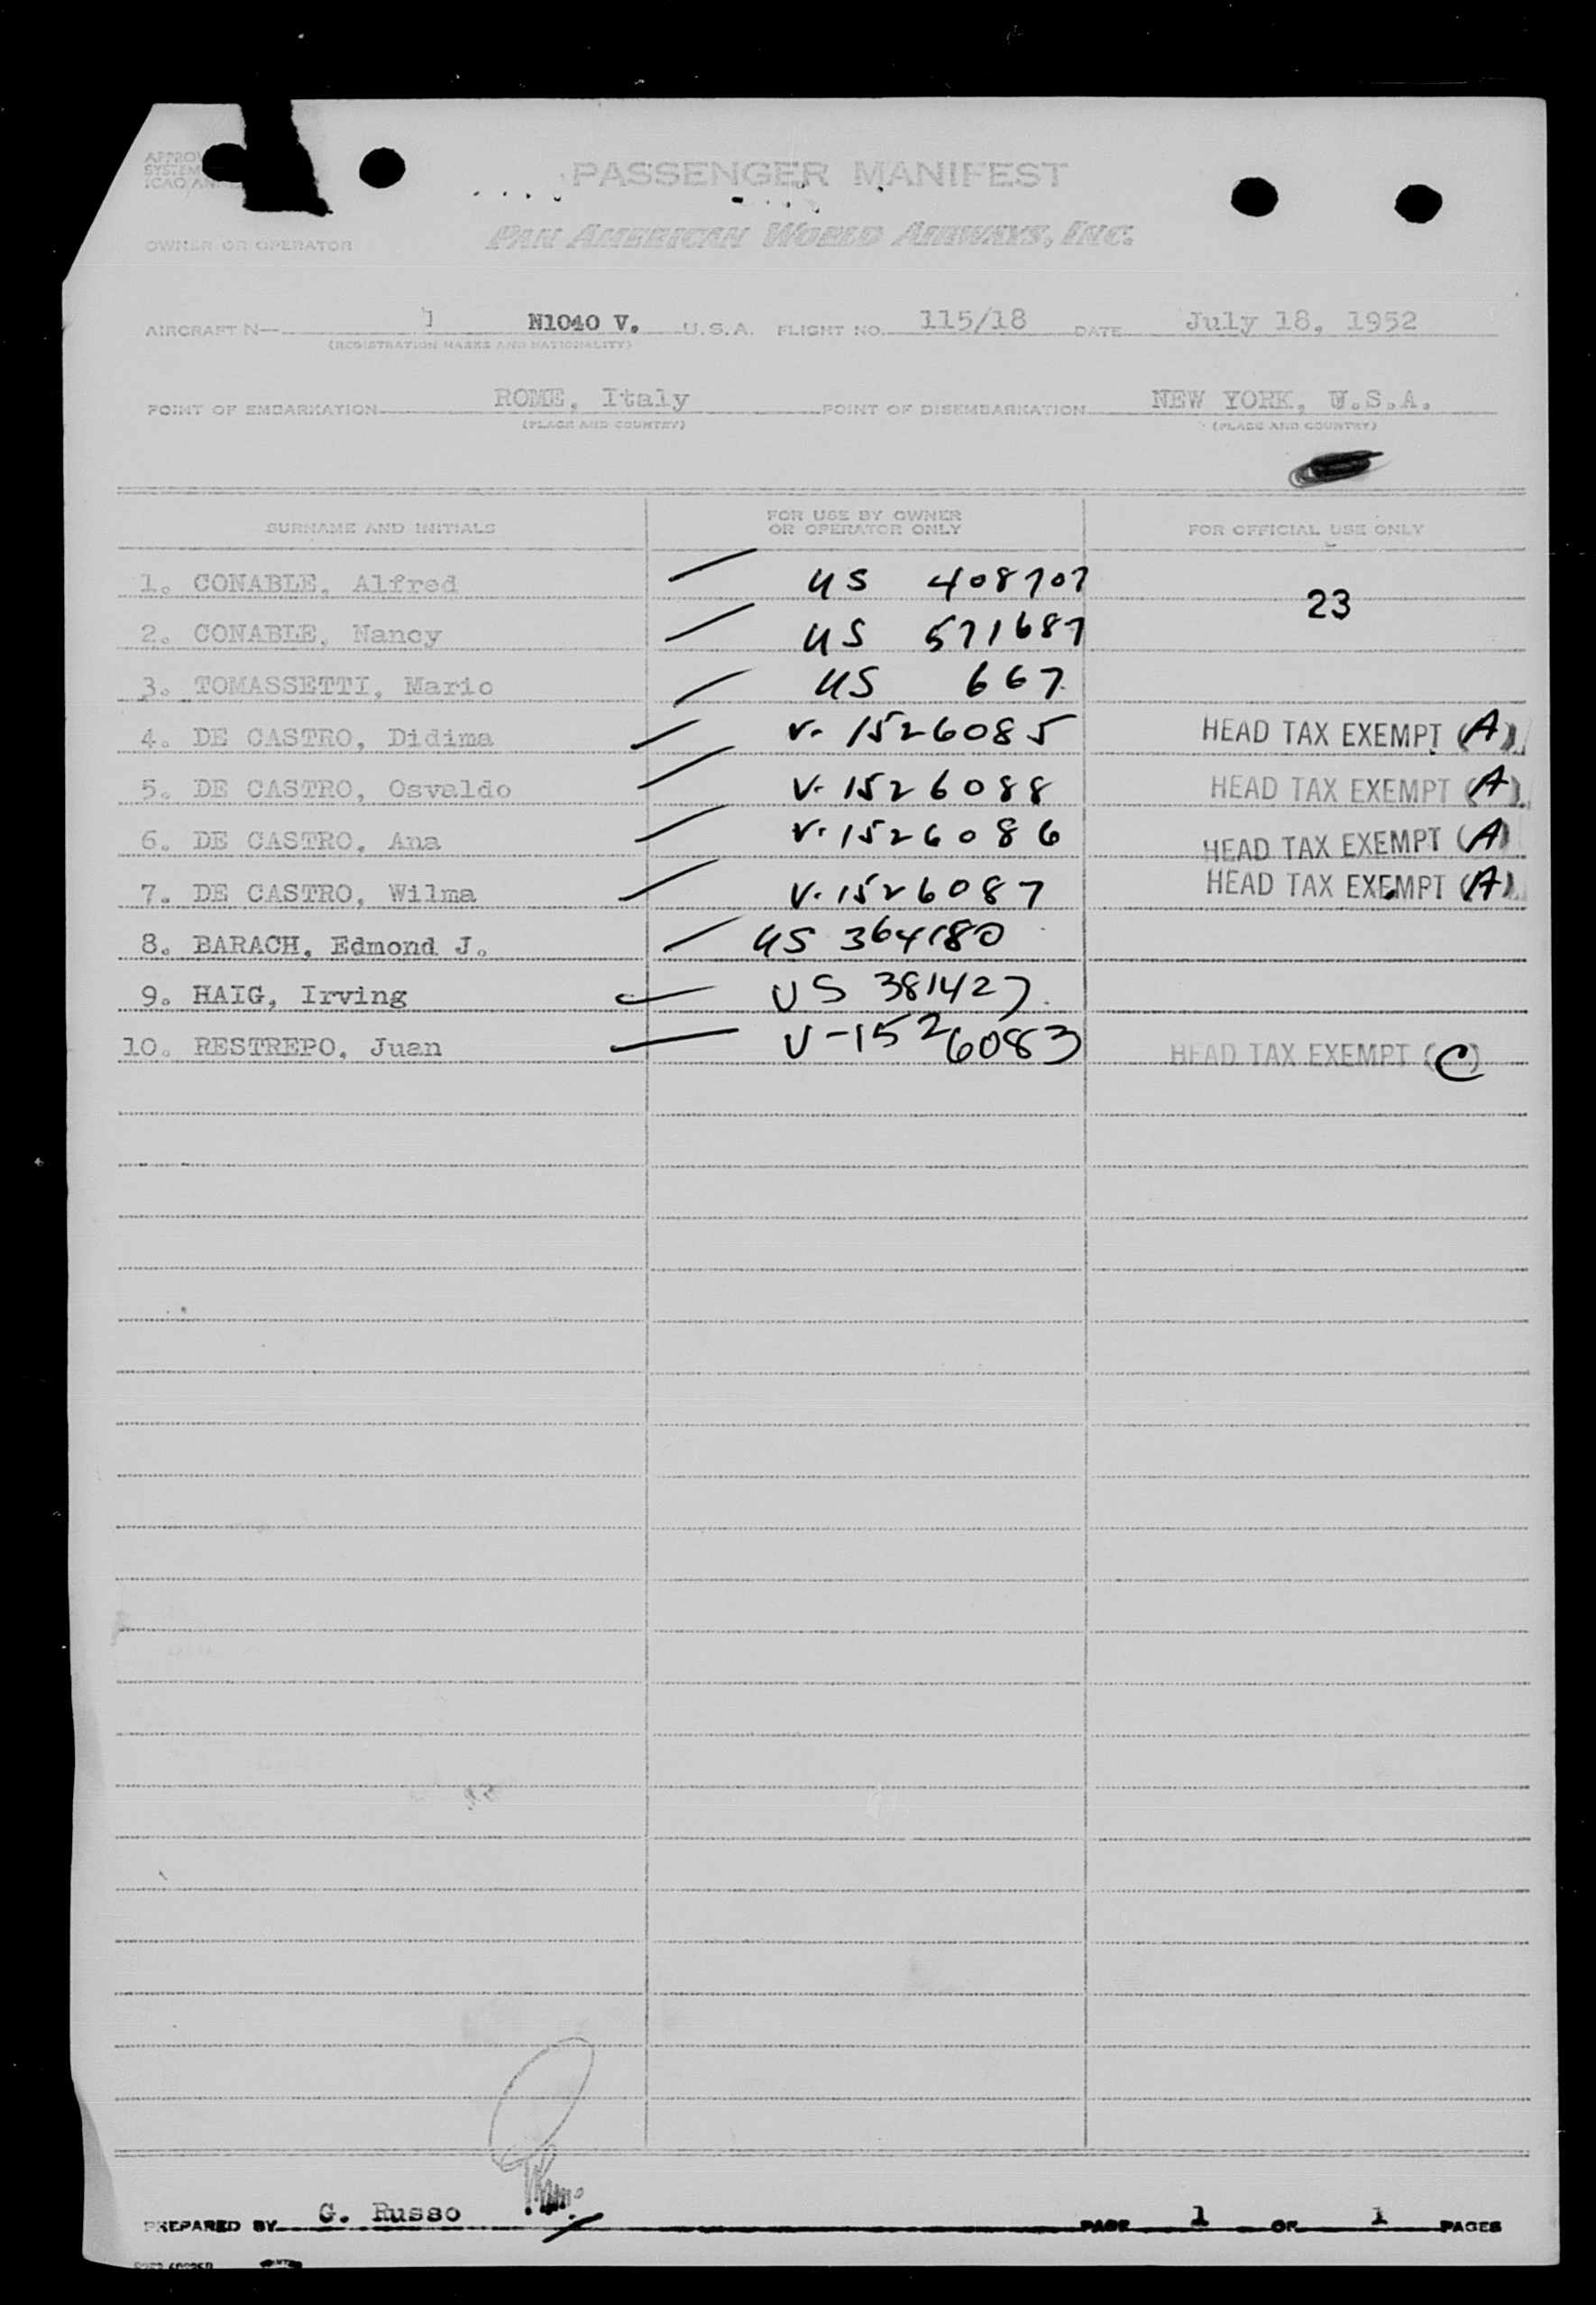 PASSENGER MANIFEST
OWNER OR OPERATOR PAN AMERICAN WORLD AIRWAYS, INC.
AIRCRAFT N— 1 N1040 V. U.S.A. FLIGHT NO. 115/18 DATE July 18, 1952
(REGISTRATION MARKS AND NATIONALITY)
POINT OF EMBARKATION ROME, Italy POINT OF DISEMBARKATION NEW YORK, U.S.A.
(PLACE AND COUNTRY) (PLACE AND COUNTRY)
SURNAME AND INITIALS FOR USE BY OWNER OR OPERATOR ONLY FOR OFFICIAL USE ONLY
1. CONABLE, Alfred US 408707 23
2. CONABLE, Nancy US 571687
3. TOMASSETTI, Mario US 667
4. DE CASTRO, Didima V. 1526085 HEAD TAX EXEMPT (A)
5. DE CASTRO, Osvaldo V. 1526088 HEAD TAX EXEMPT (A)
6. DE CASTRO, Ana V. 1526086 HEAD TAX EXEMPT (A)
7. DE CASTRO, Wilma V. 1526087 HEAD TAX EXEMPT (A)
8. BARACH, Edmond J. US 364180
9. HAIG, Irving US 381427
10. RESTREPO, Juan V-1526083 HEAD TAX EXEMPT (C)
PREPARED BY G. Russo PAGE 1 OF 1 PAGES